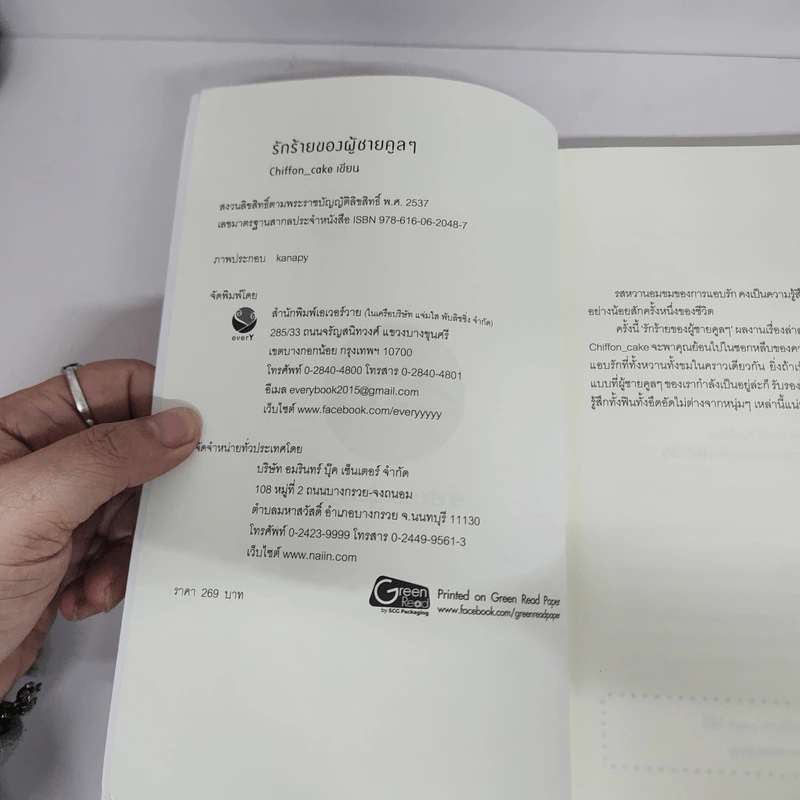 รักร้ายของผู้ชายคูลๆ
Chiffon_cake เขียน
สงวนลิขสิทธิ์ตามพระราชบัญญัติลิขสิทธิ์ พ.ศ. 2537
เลขมาตรฐานสากลประจำหนังสือ ISBN 978-616-06-2048-7
ภาพประกอบ kanapy
จัดพิมพ์โดย
everY
สำนักพิมพ์เอเวอร์วาย (ในเครือบริษัท แจ่มใส พับลิชชิ่ง จำกัด)
285/33 ถนนจรัญสนิทวงศ์ แขวงบางขุนศรี
เขตบางกอกน้อย กรุงเทพฯ 10700
โทรศัพท์ 0-2840-4800 โทรสาร 0-2840-4801
อีเมล everybook2015@gmail.com
เว็บไซต์ www.facebook.com/everyyyyy
จัดจำหน่ายทั่วประเทศโดย
บริษัท อมรินทร์ บุ๊ค เซ็นเตอร์ จำกัด
108 หมู่ที่ 2 ถนนบางกรวย-จงถนอม
ตำบลมหาสวัสดิ์ อำเภอบางกรวย จ.นนทบุรี 11130
โทรศัพท์ 0-2423-9999 โทรสาร 0-2449-9561-3
เว็บไซต์ www.naiin.com
ราคา 269 บาท
Green Read
by SCG Packaging
Printed on Green Read Paper
www.facebook.com/greenreadpaper
รสหวานอมขมของการแอบรัก คงเป็นความรู้สึ
อย่างน้อยสักครั้งหนึ่งของชีวิต
ครั้งนี้ 'รักร้ายของผู้ชายคูลๆ' ผลงานเรื่องล่าส
Chiffon_cake จะพาคุณย้อนไปในซอกหลืบของคว
แอบรักที่ทั้งหวานทั้งขมในคราวเดียวกัน ยิ่งถ้าเป็
แบบที่ผู้ชายคูลๆ ของเรากำลังเป็นอยู่ล่ะก็ รับรอง
รู้สึกทั้งฟินทั้งอึดอัดไม่ต่างจากหนุ่มๆ เหล่านี้แน่